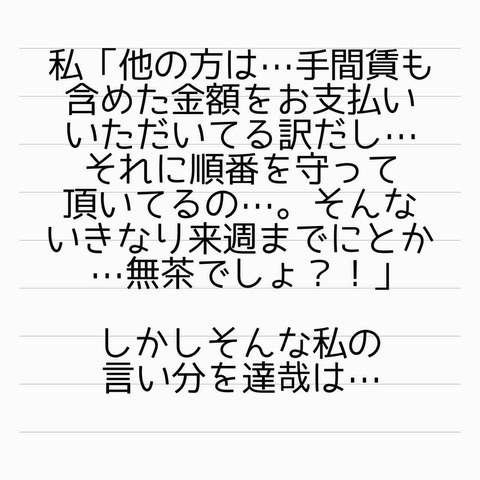 私「他の方は…手間賃も
含めた金額をお支払い
いただいてる訳だし…
それに順番を守って
頂いてるの…。そんな
いきなり来週までにとか
…無茶でしょ？！」
しかしそんな私の
言い分を達哉は…